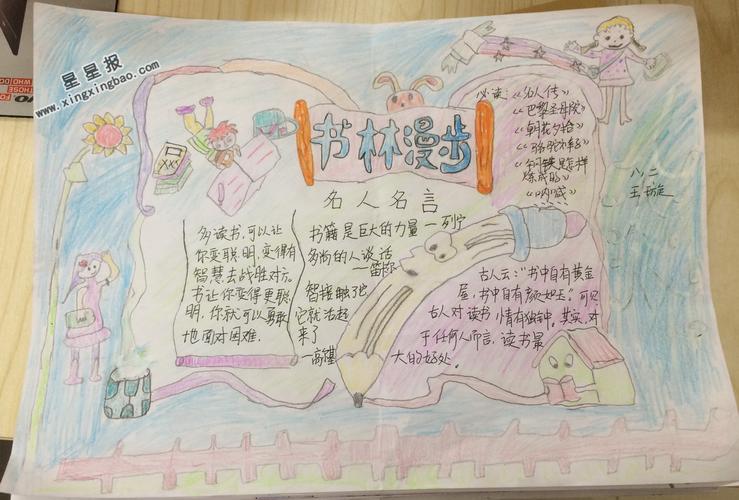 星星报
www.xingxingbao.com
书林漫步
必读:《名人传》
《巴黎圣母院》
《朝花夕拾》
《骆驼祥子》
《钢铁是怎样
炼成的》
《呐喊》
八、二
王璇
名人名言
多读书,可以让
你变聪明,变得有
智慧去战胜对方。
书让你变得更聪
明,你就可以勇敢
地面对困难.
书籍是巨大的力量—列宁
的人谈话
—笛
智接触了它
它就活起
来了
—高
古人云:“书中自有黄金
屋,书中自有颜如玉”。可见
古人对读书情有独钟。其实,对
于任何人而言,读书最
大的好处.
XXS